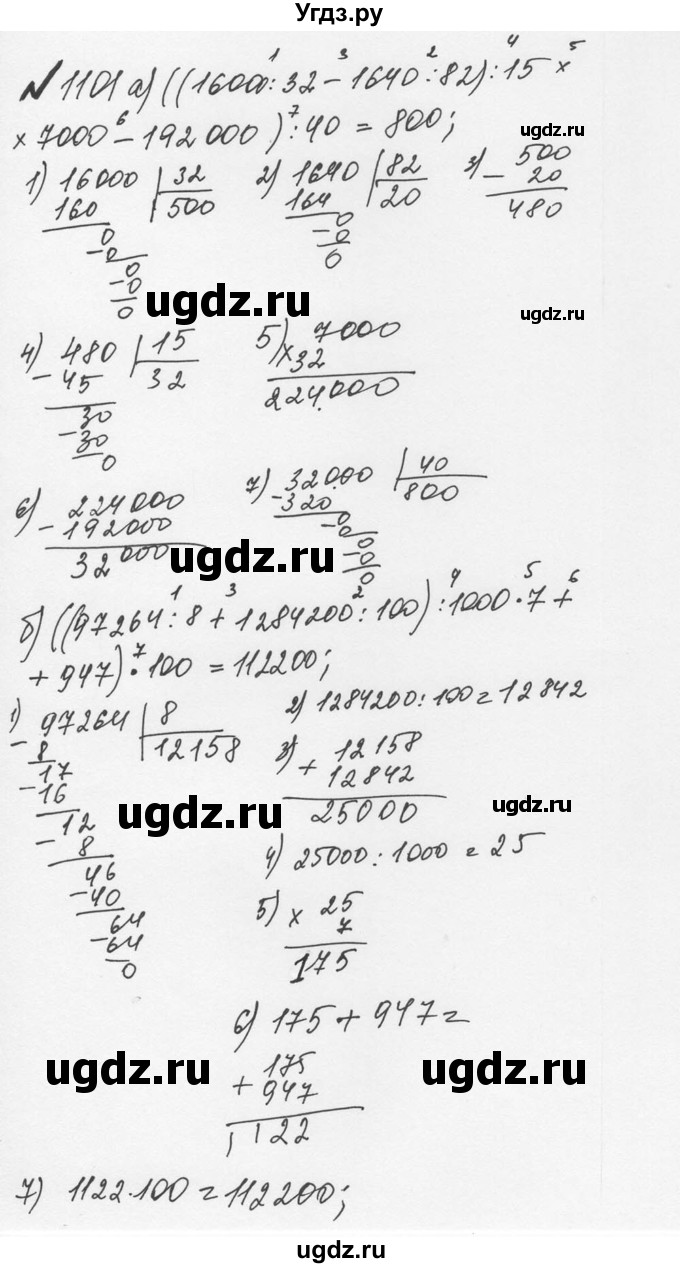 Угдз.ру
№1101 а) ((16000:32-1640:82):15×
×7000-192000):40=800;
1) 16000 32
160 500
0
-0
0
-0
0
2) 1640 82
164 20
0
-0
0
3) 500
- 20
480
4) 480 15
-45 32
30
-30
0
5) 7000
×32
224000
6) 224000
-192000
32000
7) 32000 40
-320 800
0
-0
0
-0
0
б) ((97264:8+1284200:100):1000·7+
+947)·100=112200;
1) 97264 8
-8 12158
17
-16
12
-8
46
-40
64
-64
0
2) 1284200:100=12842
3) 12158
+12842
25000
4) 25000:1000=25
5) 25
× 7
175
6) 175+947=
175
+947
1122
7) 1122·100=112200;
ugdz.ru
ugdz.ru
ugdz.ru
ugdz.ru
ugdz.ru
ugdz.ru
ugdz.ru
ugdz.ru
ugdz.ru
ugdz.ru